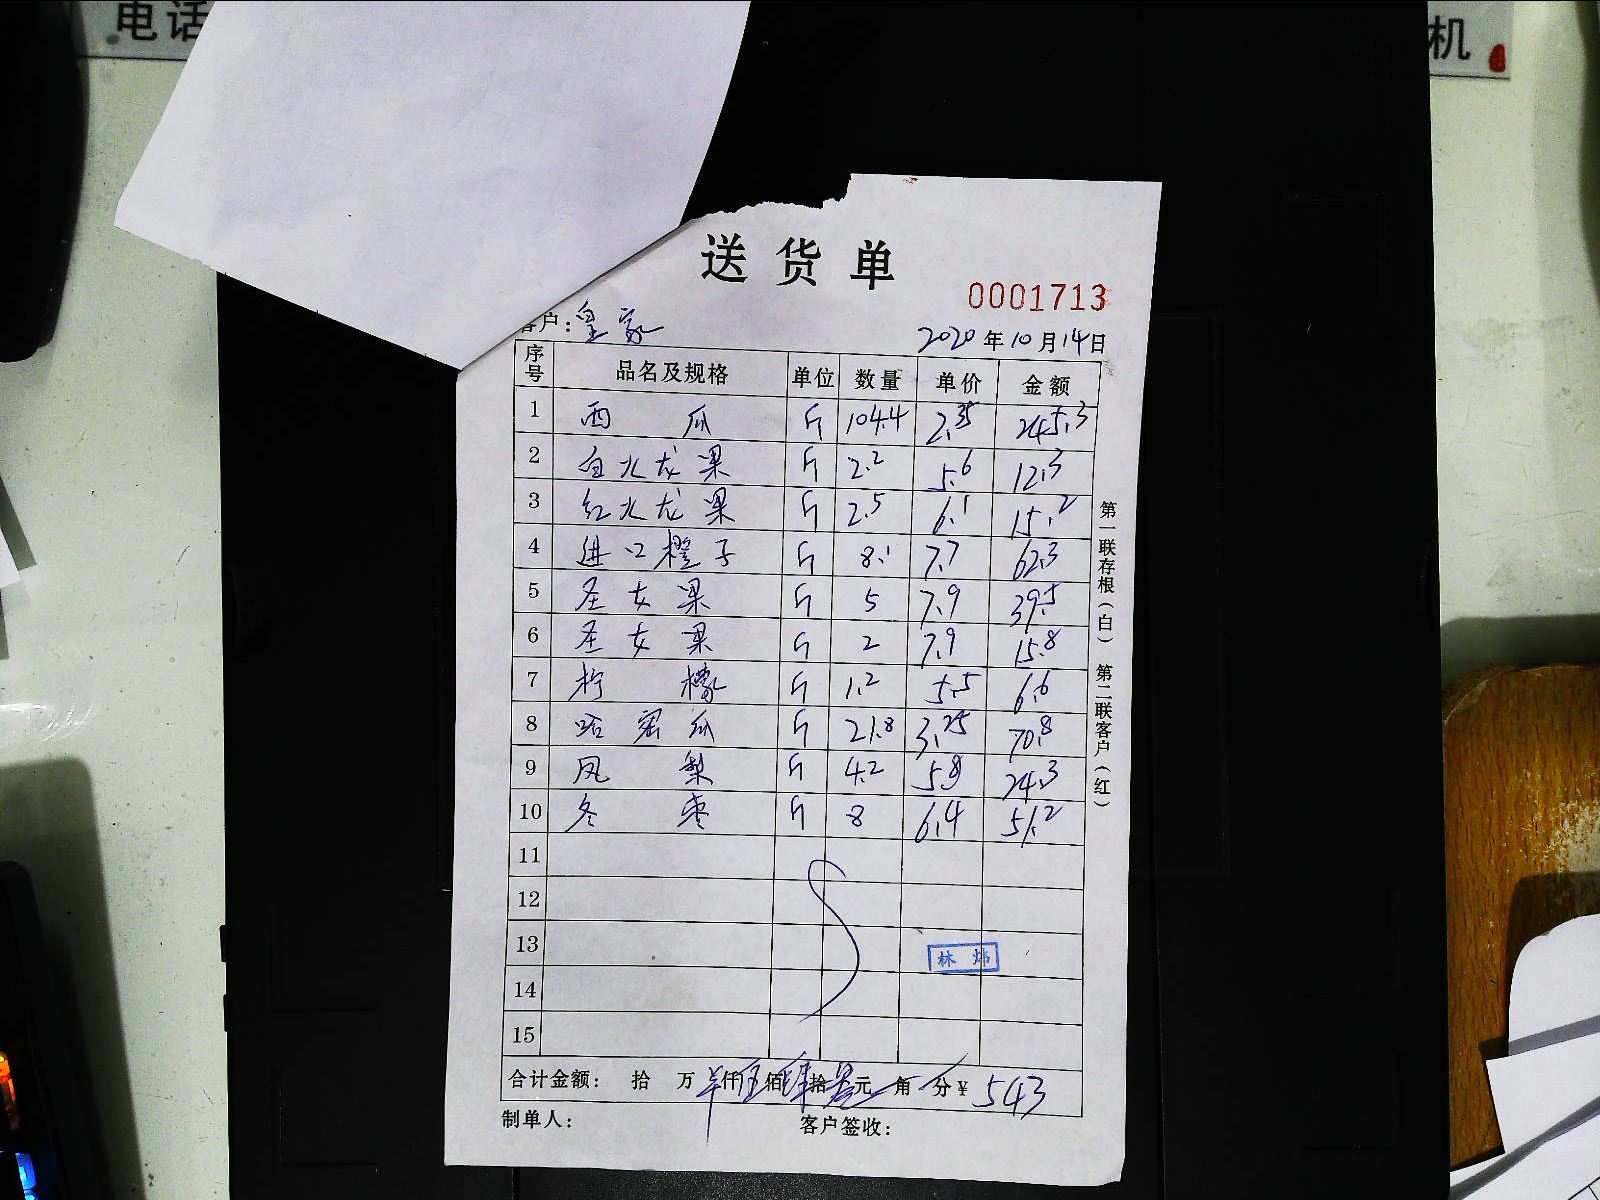 电话
机
送货单
0001713
客户：皇家
2020年10月14日
序号 品名及规格 单位 数量 单价 金额
1 西瓜 斤 104.4 2.35 245.3
2 白火龙果 斤 2.2 5.6 12.3
3 红火龙果 斤 2.5 6.1 15.2
4 进口橙子 斤 8.1 7.7 62.3
5 圣女果 斤 5 7.9 39.5
6 圣女果 斤 2 7.9 15.8
7 柠檬 斤 1.2 5.5 6.6
8 哈密瓜 斤 21.8 3.25 70.8
9 凤梨 斤 4.2 5.8 24.3
10 冬枣 斤 8 6.4 51.2
11
12
13
林炜
14
15
合计金额： 拾 万 羊仟伍佰肆拾叁元 角 分￥543
制单人： 客户签收：
第一联存根（白） 第二联客户（红）